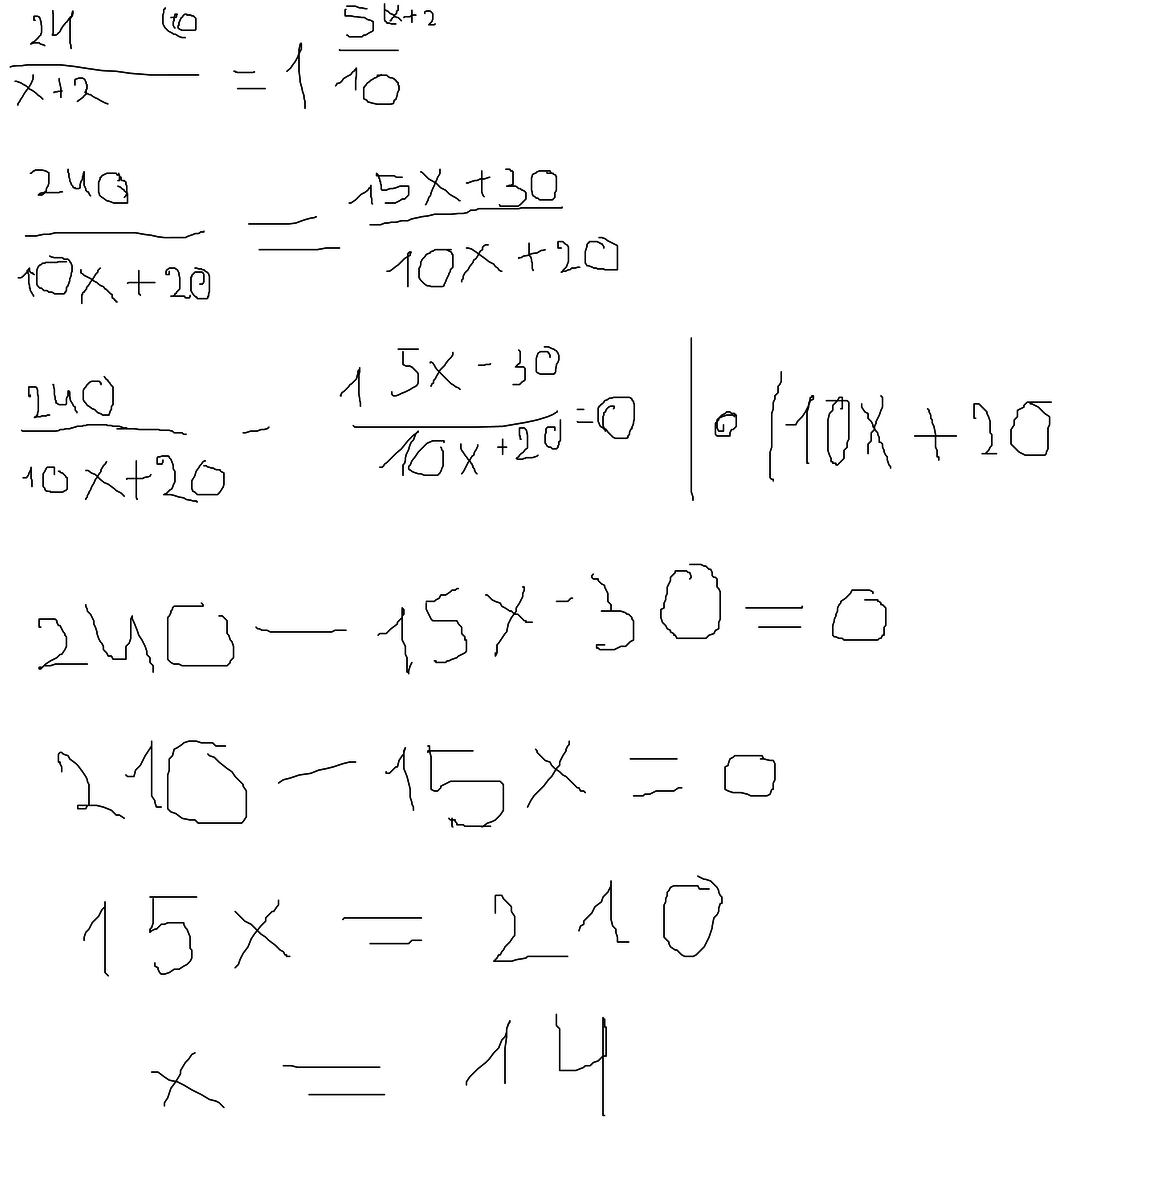 24/(x+2) (10 = 1 5/10 (x+2
240/(10x+20) = (15x+30)/(10x+20)
240/(10x+20) - (15x-30)/(10x+20) =0 | • (10x+20
240-15x-30=0
210-15x=0
15x=210
x=14